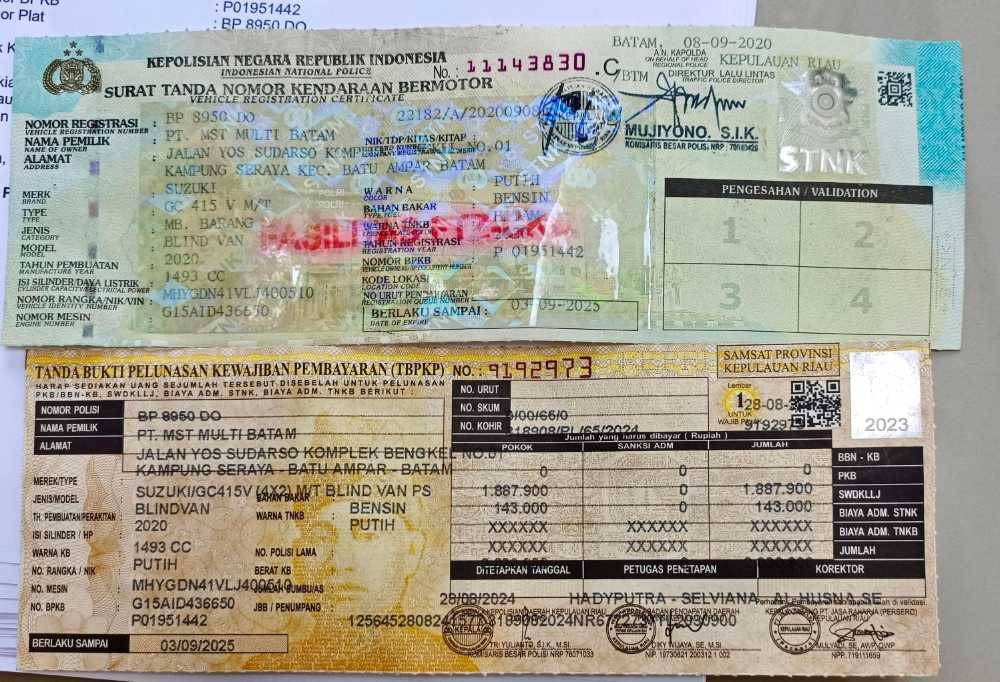 : P01951442
or Plat : BP 8950 DO
KEPOLISIAN NEGARA REPUBLIK INDONESIA
INDONESIAN NATIONAL POLICE
No. : 11143830 .C
SURAT TANDA NOMOR KENDARAAN BERMOTOR
VEHICLE REGISTRATION CERTIFICATE
BATAM, 08-09-2020
A.N. KAPOLDA KEPULAUAN RIAU
ON BEHALF OF HEAD
REGIONAL POLICE
BTM DIREKTUR LALU LINTAS
TRAFFIC POLICE DIRECTOR
MUJIYONO. S.I.K.
KOMISARIS BESAR POLISI NRP
STNK
NOMOR REGISTRASI : BP 8950 DO 22182/A/20200908
VEHICLE REGISTRATION NUMBER
NAMA PEMILIK : PT. MST MULTI BATAM
NAME OF OWNER
NIK/TDP/KITAS/KITAP :
ALAMAT : JALAN YOS SUDARSO NO.01
ADDRESS
KAMPUNG SERAYA KEC. BATU AMPAR BATAM
MERK : SUZUKI
BRAND
TYPE : GC 415 V M/T
TYPE
JENIS : MB. BARANG
CATEGORY
MODEL : BLIND VAN
MODEL
TAHUN PEMBUATAN : 2020
MANUFACTURE YEAR
ISI SILINDER/DAYA LISTRIK : 1493 CC
CYLINDER CAPACITY/ELECTRICAL POWER
NOMOR RANGKA/NIK/VIN : MHYGDN41VLJ400510
VEHICLE IDENTITY NUMBER
NOMOR MESIN : G15AID436650
ENGINE NUMBER
WARNA : PUTIH
COLOR
BAHAN BAKAR : BENSIN
TYPE FUEL
WARNA TNKB : HITAM
TAHUN REGISTRASI :
REGISTRATION YEAR
NOMOR BPKB : P 01951442
KODE LOKASI :
LOCATION CODE
NO URUT PENDAFTARAN
REGISTRATION QUEUE NUMBER
BERLAKU SAMPAI : 03-09-2025
DATE OF EXPIRE
PENGESAHAN / VALIDATION
1 2
3 4
TANDA BUKTI PELUNASAN KEWAJIBAN PEMBAYARAN (TBPKP) NO.: 9192973
HARAP SEDIAKAN UANG SEJUMLAH TERSEBUT DISEBELAH UNTUK PELUNASAN
PKB/BBN-KB, SWDKLLJ, BIAYA ADM. STNK, BIAYA ADM. TNKB BERIKUT :
SAMSAT PROVINSI
KEPULAUAN RIAU
Lembar
1
UNTUK
WAJIB
2023
NO. URUT
NO. SKUM
NO. KOHIR
NOMOR POLISI BP 8950 DO
NAMA PEMILIK PT. MST MULTI BATAM
ALAMAT JALAN YOS SUDARSO KOMPLEK BENGKEL NO.01
KAMPUNG SERAYA - BATU AMPAR - BATAM
MEREK/TYPE : SUZUKI/GC415V (4X2) M/T BLIND VAN PS
JENIS/MODEL : BLINDVAN
TH. PEMBUATAN/PERAKITAN : 2020
ISI SILINDER / HP : 1493 CC
WARNA KB : PUTIH
NO. RANGKA / NIK : MHYGDN41VLJ400510
NO. MESIN : G15AID436650
NO. BPKB : P01951442
BERLAKU SAMPAI 03/09/2025
BAHAN BAKAR : BENSIN
WARNA TNKB : PUTIH
NO. POLISI LAMA :
BERAT KB :
JUMLAH SUMBU/AS :
JBB / PENUMPANG :
Jumlah yang harus dibayar ( Rupiah )
POKOK SANKSI ADM JUMLAH
0 0 0 BBN - KB
1.887.900 0 1.887.900 PKB
143.000 0 143.000 SWDKLLJ
XXXXXX XXXXXX XXXXXX BIAYA ADM. STNK
XXXXXX XXXXXX XXXXXX BIAYA ADM. TNKB
JUMLAH
DITETAPKAN TANGGAL PETUGAS PENETAPAN KOREKTOR
28/08/2024 HADYPUTRA - SELVIANA, AL HUSNA,SE
KEPOLISIAN DAERAH KEPULAUAN RIAU
TRI YULIANTO, S.I.K, M.SI
KOMISARIS BESAR POLISI NRP 76071033
BADAN PENDAPATAN DAERAH
KEPULAUAN RIAU
DIKY WIJAYA, SE, M.SI
NIP. 19730621 200312 1 002
PT. JASA RAHARJA (PERSERO)
KEPULAUAN RIAU
NPP. 719111659